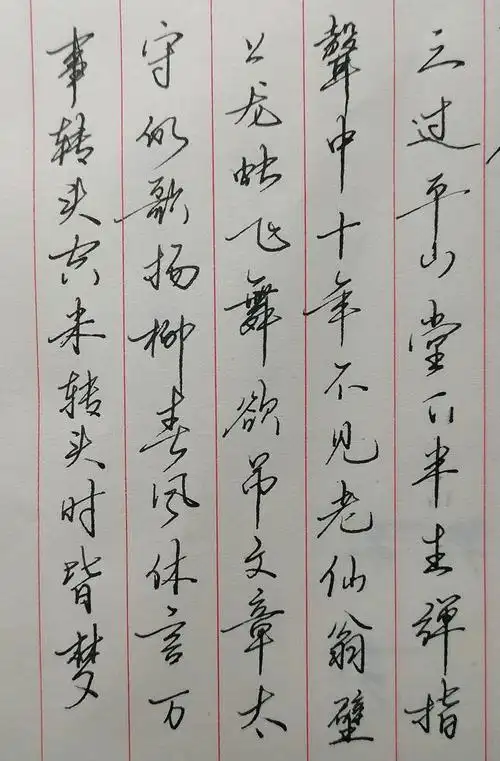 三过平山堂下半生弹指
聲中十年不见老仙翁壁
上龙蛇飞舞欲吊文章太
守仍歌杨柳春风休言万
事转头空未转头时皆梦